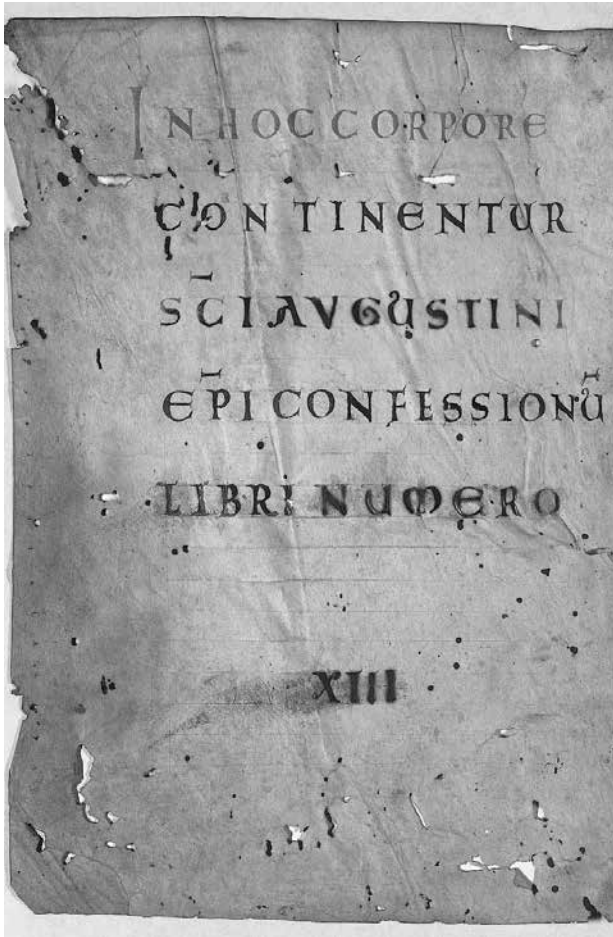 IN HOC CORPORE
CONTINENTUR
SC̄I AVGUSTINI
EP̄I CONFESSIONŪ
LIBRI NUMERO
XIII